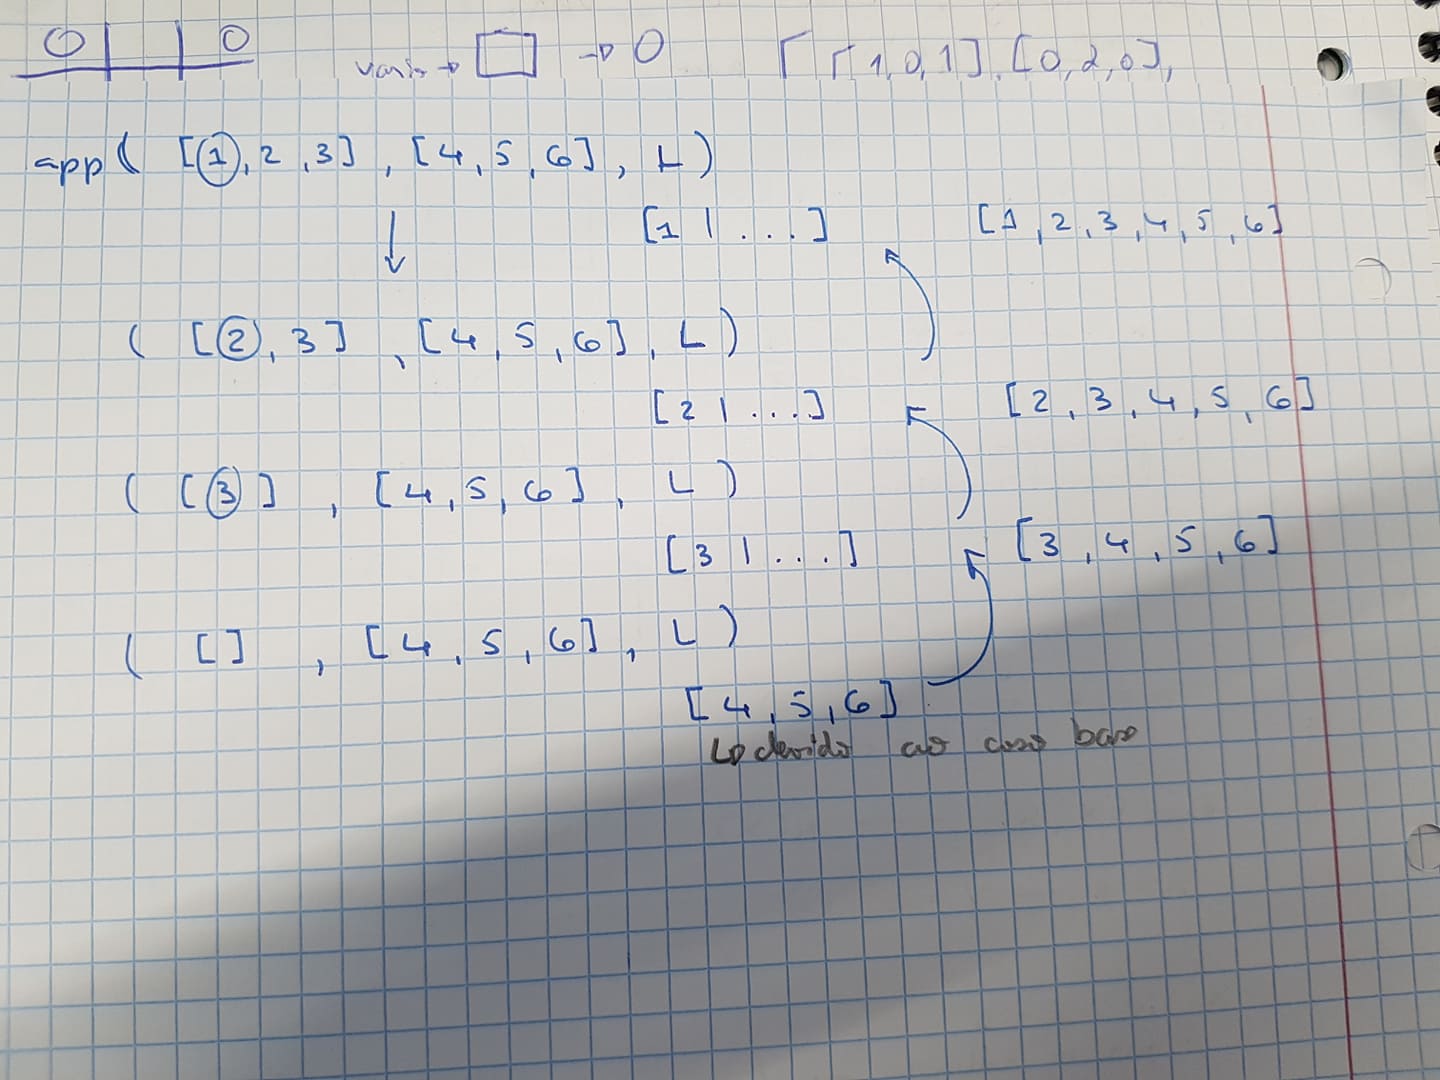 0 0 → 0 [ [1,0,1], [0,2,0],
app( [1,2,3] , [4,5,6] , L )
[1 | ...] [1,2,3,4,5,6]
( [2,3] , [4,5,6] , L )
[2 | ...] [2,3,4,5,6]
( [3] , [4,5,6] , L )
[3 | ...] [3,4,5,6]
( [] , [4,5,6] , L )
[4,5,6]
↳ devido ao caso base